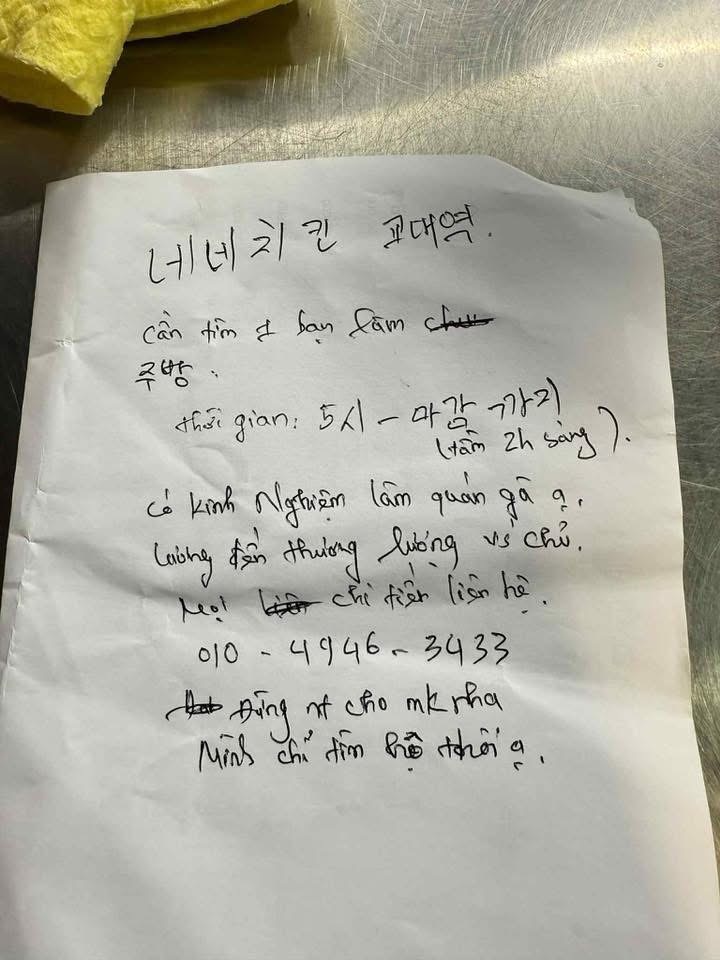 네네치킨 교대역.
cần tìm 1 bạn làm
주방.
thời gian: 5시 - 마감까지
(tầm 2h sáng).
có kinh Nghiệm làm quán gà ạ.
lương đến thương lượng vs chủ.
Mọi chi tiến liên hệ.
010 - 4946 - 3433
Đừng nt cho mk nha
Mình chỉ tìm hộ thôi ạ.